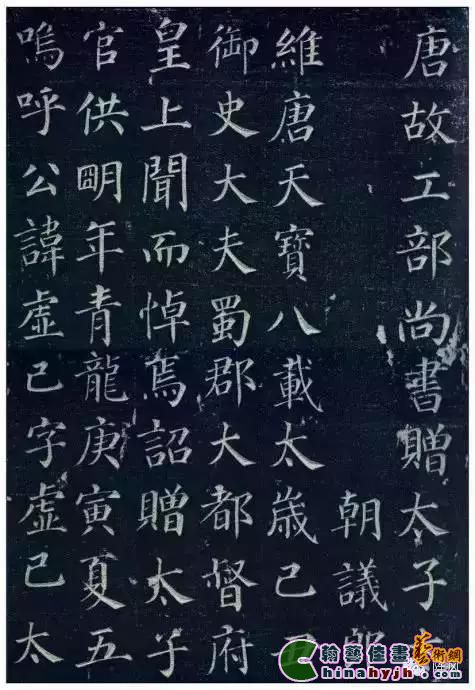 唐故工部尚書贈太子
朝議郎
維唐天寶八載太歲己丑
御史大夫蜀郡大都督府
皇上聞而悼焉詔贈太子
官供明年青龍庚寅夏五
嗚呼公諱虛己字虛己太
翰藝佳畫 藝術網
hinahyjh.com